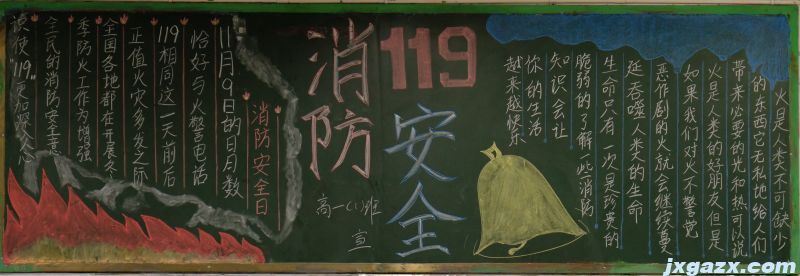 火是人类不可缺少
的东西它无私地给人们
带来必要的光和热可以说
火是人类的好朋友但是
如果我们对火不警觉
恶作剧的火就会继续蔓
延吞噬人类的生命
生命只有一次是珍贵的
脆弱的了解一些消防
知识会让
你的生活
越来越快乐
119
消防
安全
高一(1)班
宣
消防安全日
11月9日的日月数
恰好与火警电话
119相同这一天前后
正值火灾多发之际
全国各地都在开展冬
季防火工作为增强
全民的消防安全意
识使"119"更加深人心
jxgazx.com